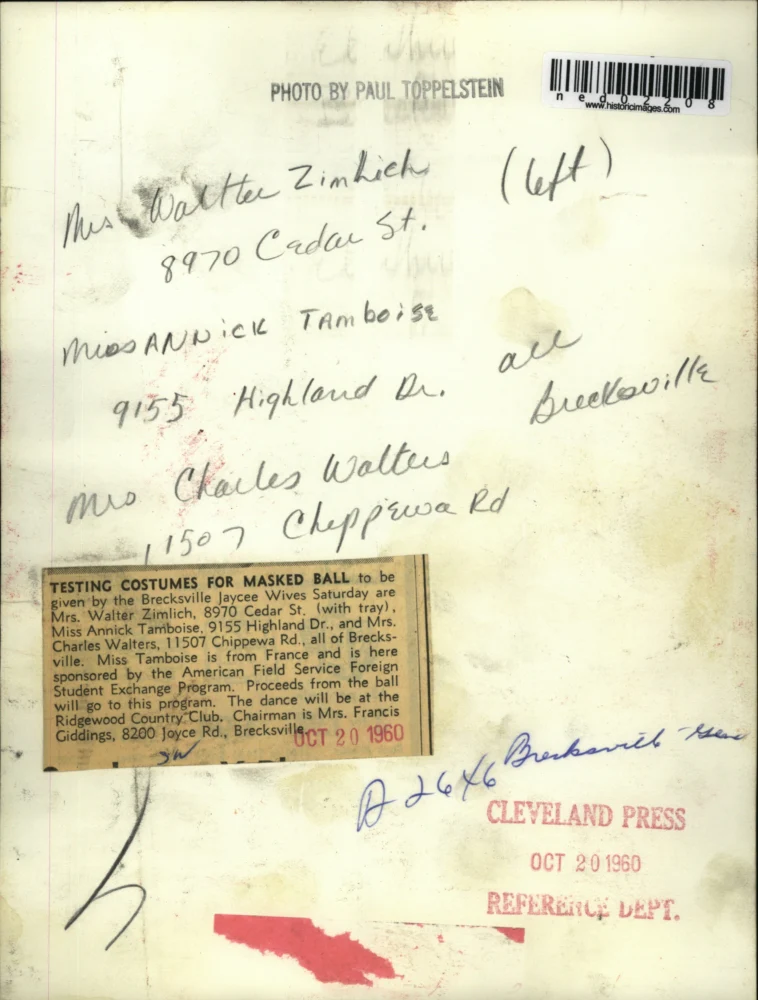 PHOTO BY PAUL TOPPELSTEIN
ned02208
www.historicimages.com
Mrs Waltter Zimlich (left)
8970 Cedar St.
Miss ANNICK TAMboise
9155 Highland Dr. all
Brecksville
Mrs Charles Walters
11507 Chippewa Rd
TESTING COSTUMES FOR MASKED BALL to be
given by the Brecksville Jaycee Wives Saturday are
Mrs. Walter Zimlich, 8970 Cedar St. (with tray),
Miss Annick Tamboise, 9155 Highland Dr., and Mrs.
Charles Walters, 11507 Chippewa Rd., all of Brecks-
ville. Miss Tamboise is from France and is here
sponsored by the American Field Service Foreign
Student Exchange Program. Proceeds from the ball
will go to this program. The dance will be at the
Ridgewood Country Club. Chairman is Mrs. Francis
Giddings, 8200 Joyce Rd., Brecksville.
OCT 20 1960
A 2646 Brecksville - Gen
CLEVELAND PRESS
OCT 20 1960
REFERENCE DEPT.